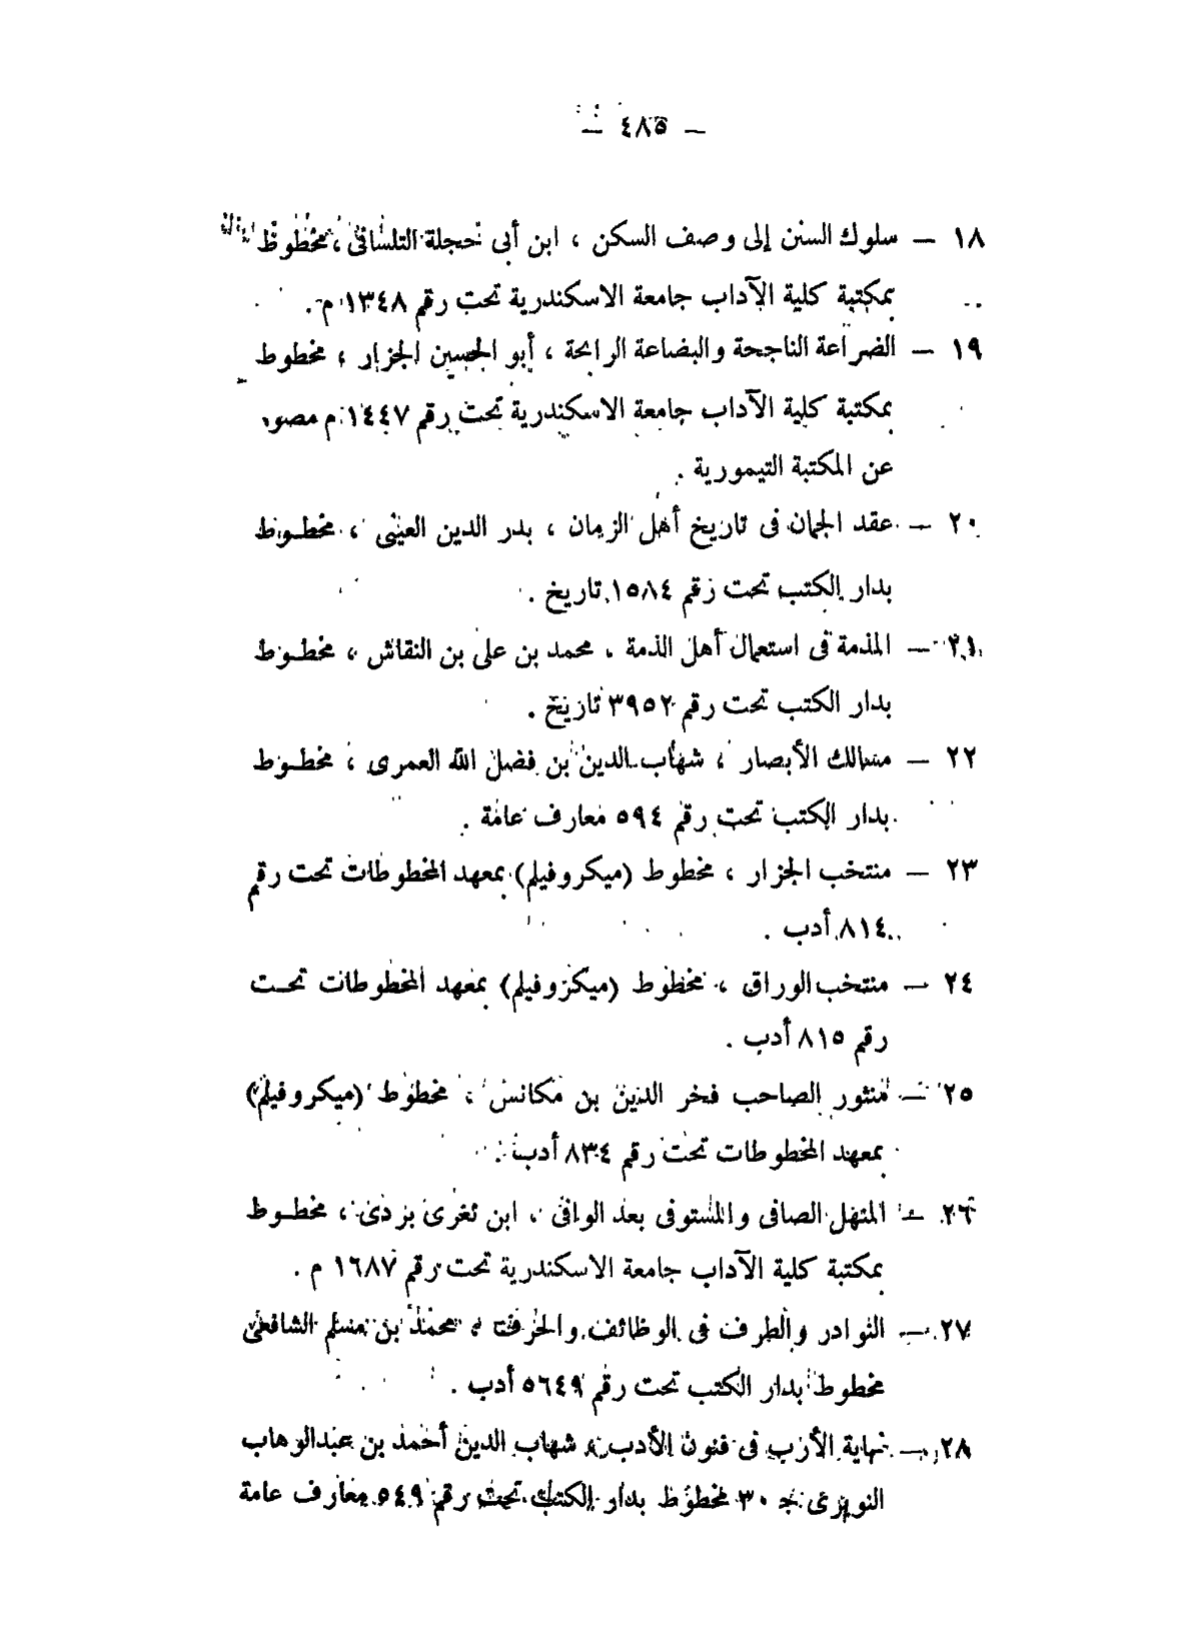 — ٤٨٥ —
١٨ — سلوك السنن إلى وصف السكن ، ابن أبى حجلة التلسانى ، مخطوط
بمكتبة كلية الآداب جامعة الاسكندرية تحت رقم ١٣٤٨ م .
١٩ — الضراعة الناجحة والبضاعة الرابحة ، أبو الحسين الجزار ، مخطوط
بمكتبة كلية الآداب جامعة الاسكندرية تحت رقم ١٤٤٧ م مصور
عن المكتبة التيمورية .
٢٠ — عقد الجمان فى تاريخ أهل الزمان ، بدر الدين العينى ، مخطوط
بدار الكتب تحت رقم ١٥٨٤ تاريخ .
٢١ — المذمة فى استعمال أهل الذمة ، محمد بن على بن النقاش ، مخطوط
بدار الكتب تحت رقم ٣٩٥٢ تاريخ .
٢٢ — مسالك الأبصار ، شهاب الدين بن فضل الله العمرى ، مخطوط
بدار الكتب تحت رقم ٥٩٤ معارف عامة .
٢٣ — منتخب الجزار ، مخطوط (ميكروفيلم) بمعهد المخطوطات تحت رقم
٨١٤ أدب .
٢٤ — منتخب الوراق ، مخطوط (ميكروفيلم) بمعهد المخطوطات تحت
رقم ٨١٥ أدب .
٢٥ — منثور الصاحب فخر الدين بن مكانس ، مخطوط (ميكروفيلم)
بمعهد المخطوطات تحت رقم ٨٣٤ أدب .
٢٦ — المنهل الصافى والمستوفى بعد الوافى ، ابن تغرى بردى ، مخطوط
بمكتبة كلية الآداب جامعة الاسكندرية تحت رقم ١٦٨٧ م .
٢٧ — النوادر والطرف فى الوظائف والحرف ، محمد بن مسلم الشافعى
مخطوط بدار الكتب تحت رقم ٥٦٤٩ أدب .
٢٨ — نهاية الأرب فى فنون الأدب ، شهاب الدين أحمد بن عبدالوهاب
النويرى ج ٣٠ مخطوط بدار الكتب تحت رقم ٥٤٩ معارف عامة